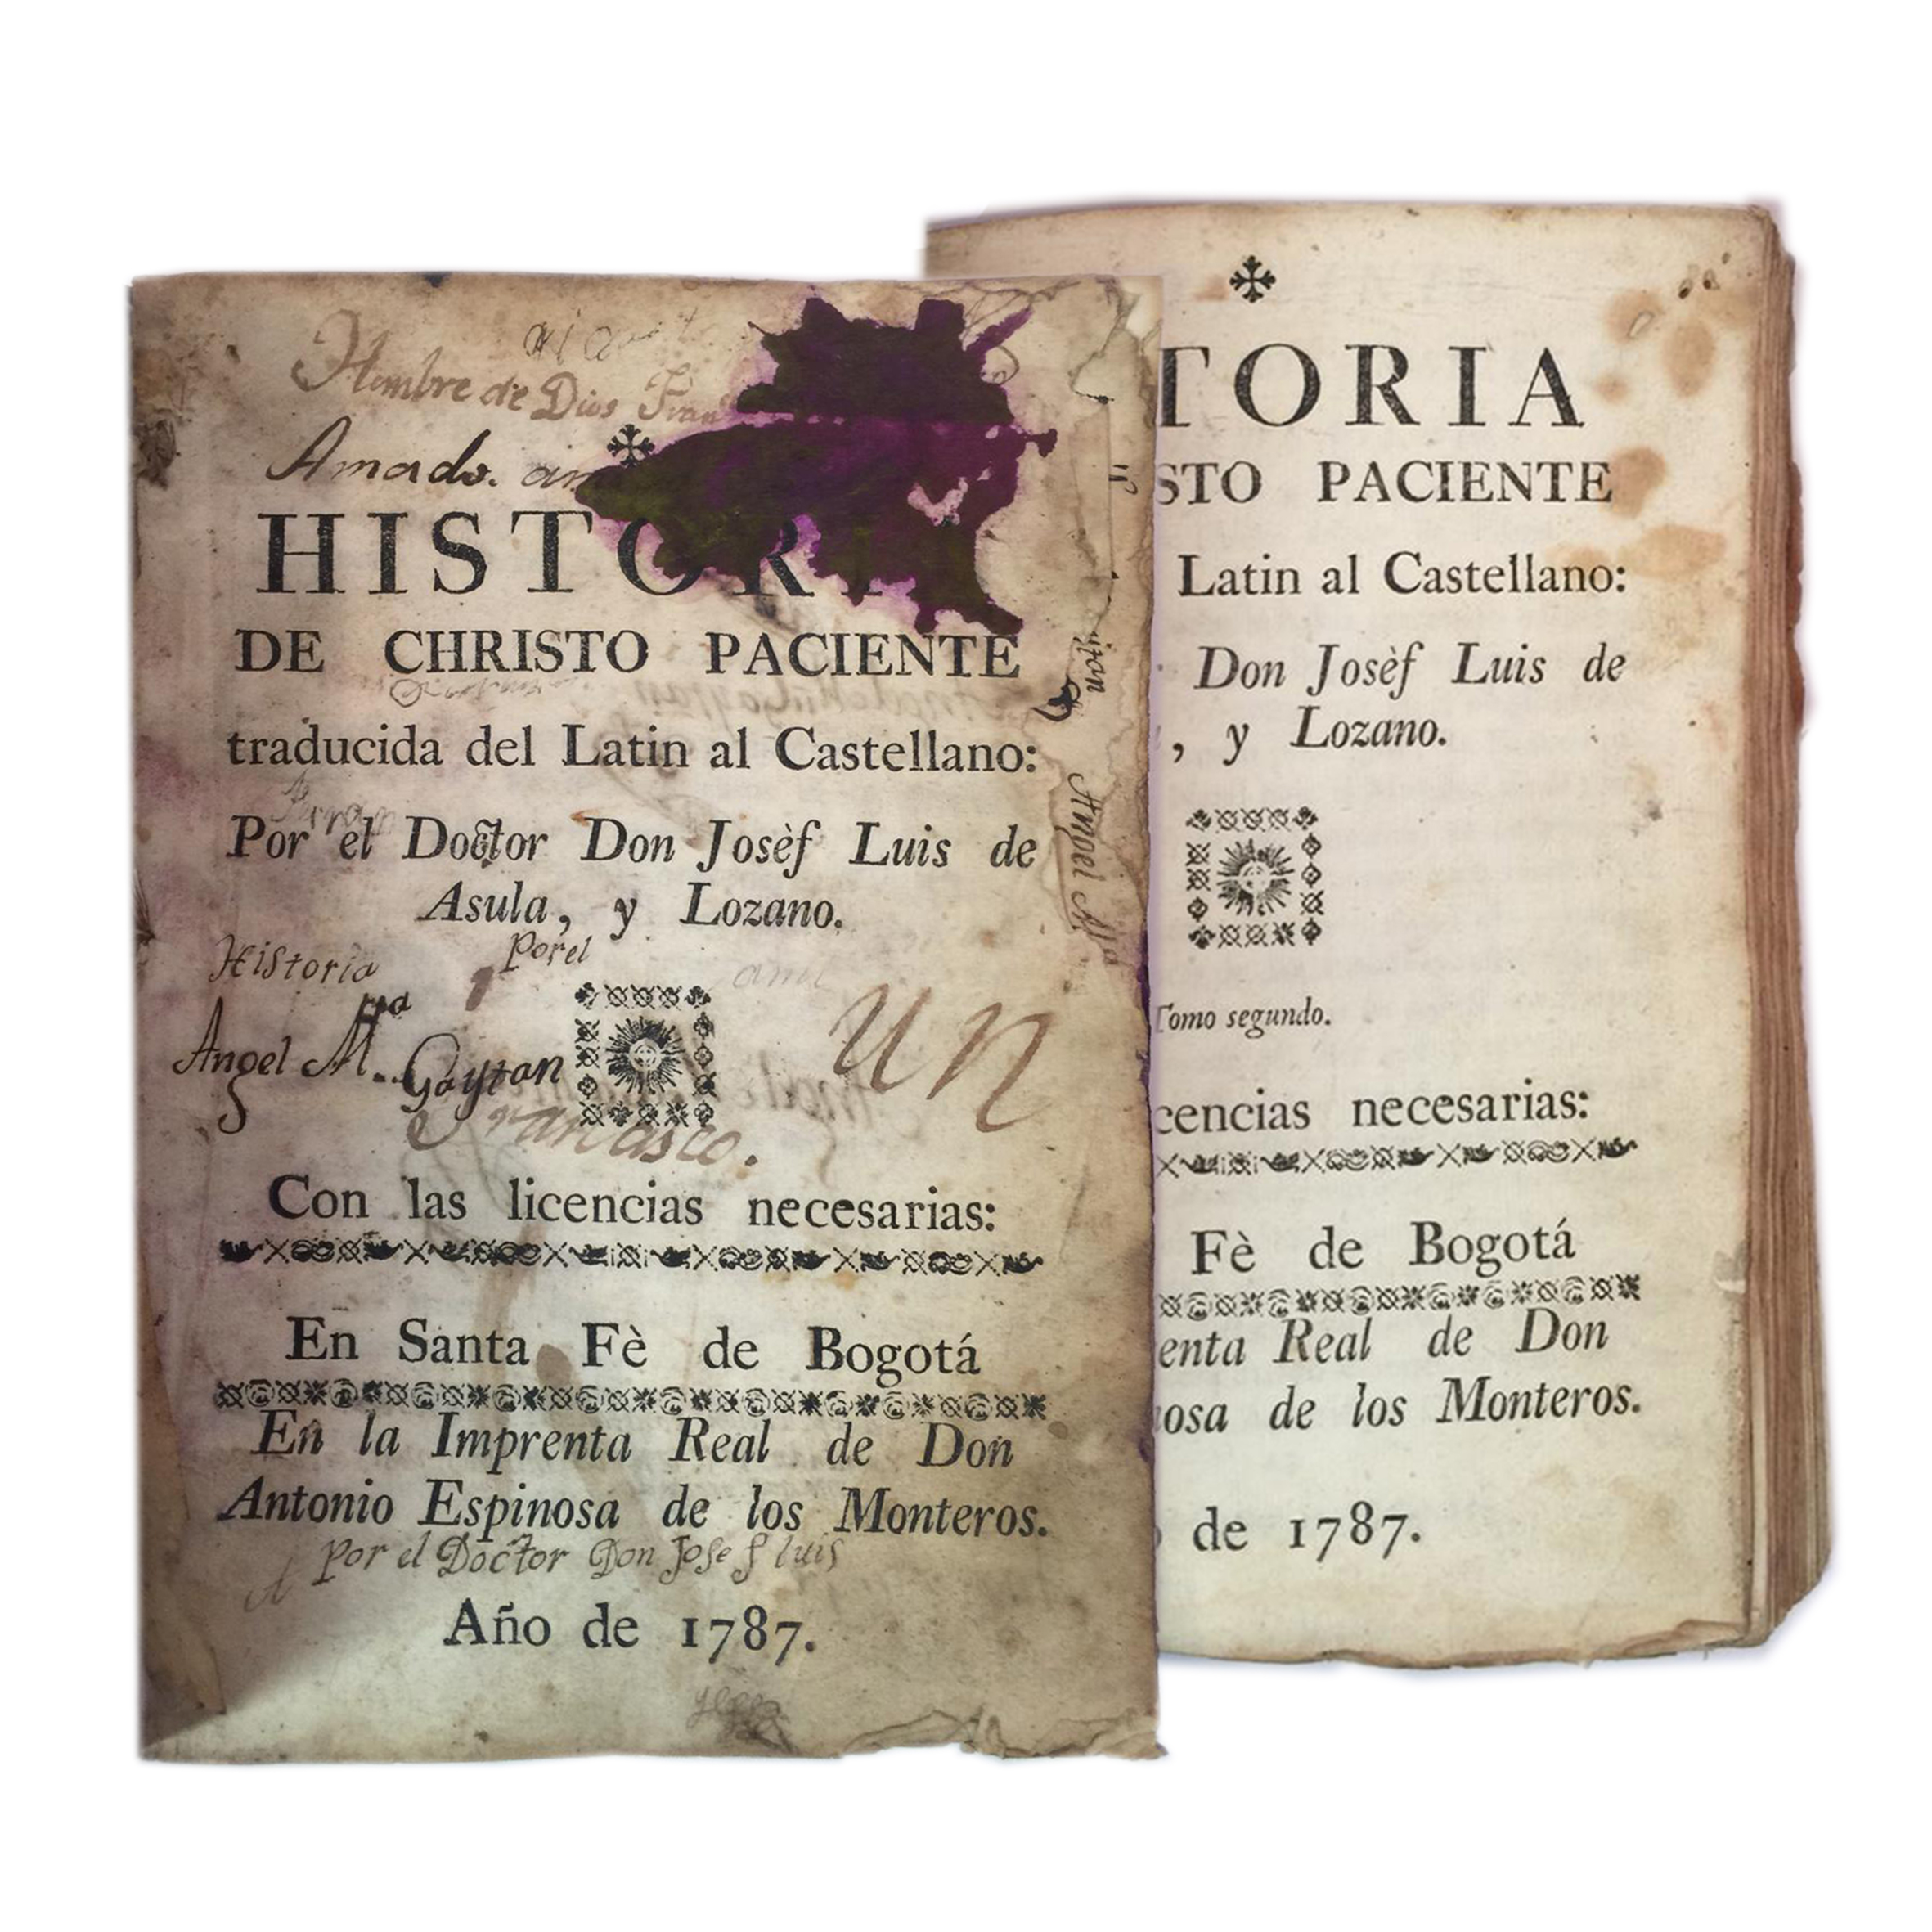 Hombre de Dios Fran
Amado. am
HISTORIA
DE CHRISTO PACIENTE
traducida del Latin al Castellano:
Por el Doctor Don Josèf Luis de
Asula, y Lozano.
Historia
Por el
Angel M.ª Gaytan
un
Francisco.
Con las licencias necesarias:
En Santa Fè de Bogotá
En la Imprenta Real de Don
Antonio Espinosa de los Monteros.
por el Doctor Don Josef luis
Año de 1787.
Angel M.ª
TORIA
STO PACIENTE
Latin al Castellano:
Don Josèf Luis de
, y Lozano.
Tomo segundo.
cencias necesarias:
Fè de Bogotá
enta Real de Don
osa de los Monteros.
de 1787.